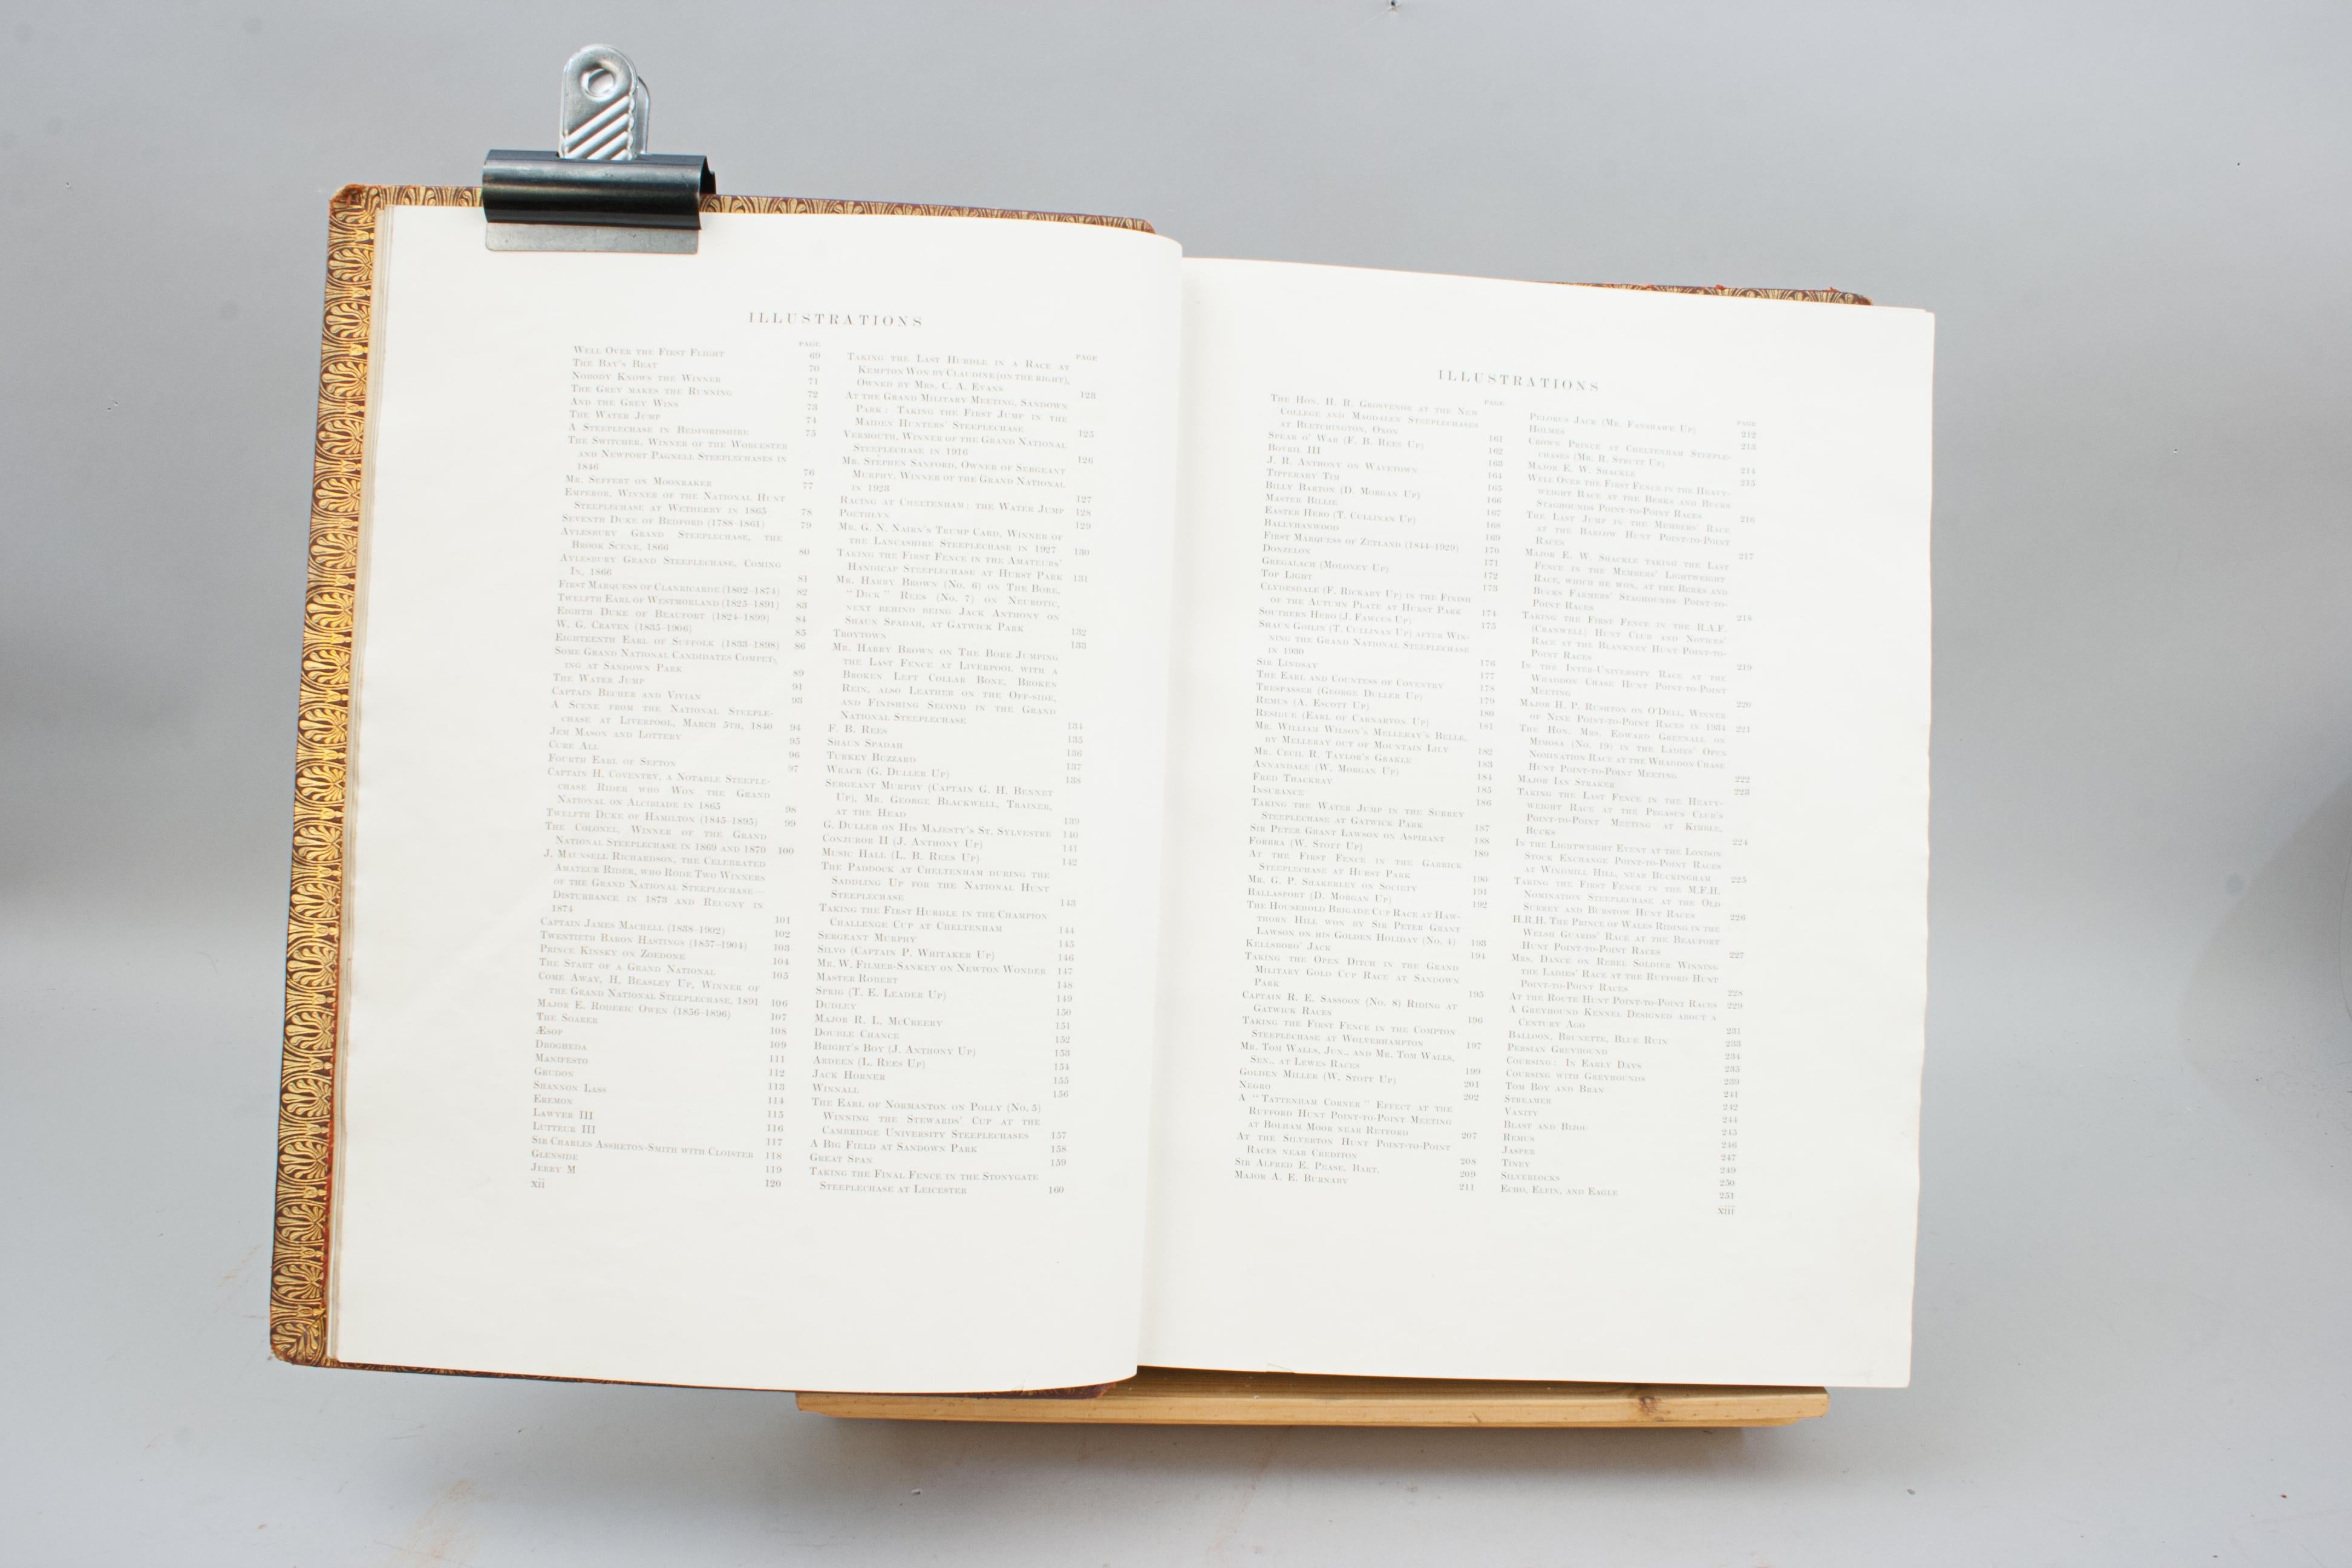 ILLUSTRATIONS
PAGE
WELL OVER THE FIRST FLIGHT 69
THE BAY'S BEAT 70
NOBODY KNOWS THE WINNER 71
THE GREY MAKES THE RUNNING 72
AND THE GREY WINS 73
THE WATER JUMP 74
A STEEPLECHASE IN BEDFORDSHIRE 75
THE SWITCHER, WINNER OF THE WORCESTER
AND NEWPORT PAGNELL STEEPLECHASES IN
1846 76
MR. SEFFERT ON MOONRAKER 77
EMPEROR, WINNER OF THE NATIONAL HUNT
STEEPLECHASE AT WETHERBY IN 1865 78
SEVENTH DUKE OF BEDFORD (1788–1861) 79
AYLESBURY GRAND STEEPLECHASE, THE
BROOK SCENE, 1866 80
AYLESBURY GRAND STEEPLECHASE, COMING
IN, 1866 81
FIRST MARQUESS OF CLANRICARDE (1802–1874) 82
TWELFTH EARL OF WESTMORLAND (1825–1891) 83
EIGHTH DUKE OF BEAUFORT (1824–1899) 84
W. G. CRAVEN (1835–1906) 85
EIGHTEENTH EARL OF SUFFOLK (1833–1898) 86
SOME GRAND NATIONAL CANDIDATES COMPET-
ING AT SANDOWN PARK 89
THE WATER JUMP 91
CAPTAIN BECHER AND VIVIAN 93
A SCENE FROM THE NATIONAL STEEPLE-
CHASE AT LIVERPOOL, MARCH 5TH, 1840 94
JEM MASON AND LOTTERY 95
CURE ALL 96
FOURTH EARL OF SEFTON 97
CAPTAIN H. COVENTRY, A NOTABLE STEEPLE-
CHASE RIDER WHO WON THE GRAND
NATIONAL ON ALCIBIADE IN 1865 98
TWELFTH DUKE OF HAMILTON (1845–1895) 99
THE COLONEL, WINNER OF THE GRAND
NATIONAL STEEPLECHASE IN 1869 AND 1870 100
J. MAUNSELL RICHARDSON, THE CELEBRATED
AMATEUR RIDER, WHO RODE TWO WINNERS
OF THE GRAND NATIONAL STEEPLECHASE—
DISTURBANCE IN 1873 AND REUGNY IN
1874 101
CAPTAIN JAMES MACHELL (1838–1902) 102
TWENTIETH BARON HASTINGS (1857–1904) 103
PRINCE KINSKY ON ZOEDONE 104
THE START OF A GRAND NATIONAL 105
COME AWAY, H. BEASLEY UP, WINNER OF
THE GRAND NATIONAL STEEPLECHASE, 1891 106
MAJOR E. RODERIC OWEN (1856–1896) 107
THE SOARER 108
ÆSOP 109
DROGHEDA 111
MANIFESTO 112
GRUDON 113
SHANNON LASS 114
EREMON 115
LAWYER III 116
LUTTEUR III 117
SIR CHARLES ASSHETON-SMITH WITH CLOISTER 118
GLENSIDE 119
JERRY M 120
xii
PAGE
TAKING THE LAST HURDLE IN A RACE AT
KEMPTON WON BY CLAUDINE (ON THE RIGHT),
OWNED BY MRS. C. A. EVANS 123
AT THE GRAND MILITARY MEETING, SANDOWN
PARK: TAKING THE FIRST JUMP IN THE
MAIDEN HUNTERS' STEEPLECHASE 125
VERMOUTH, WINNER OF THE GRAND NATIONAL
STEEPLECHASE IN 1916 126
MR. STEPHEN SANFORD, OWNER OF SERGEANT
MURPHY, WINNER OF THE GRAND NATIONAL
IN 1923 127
RACING AT CHELTENHAM: THE WATER JUMP 128
POETHLYN 129
MR. G. N. NAIRN'S TRUMP CARD, WINNER OF
THE LANCASHIRE STEEPLECHASE IN 1927 130
TAKING THE FIRST FENCE IN THE AMATEURS'
HANDICAP STEEPLECHASE AT HURST PARK 131
MR. HARRY BROWN (NO. 6) ON THE BORE,
"DICK" REES (NO. 7) ON NEUROTIC,
NEXT BEHIND BEING JACK ANTHONY ON
SHAUN SPADAH, AT GATWICK PARK 132
TROYTOWN 133
MR. HARRY BROWN ON THE BORE JUMPING
THE LAST FENCE AT LIVERPOOL WITH A
BROKEN LEFT COLLAR BONE, BROKEN
REIN, ALSO LEATHER ON THE OFF-SIDE,
AND FINISHING SECOND IN THE GRAND
NATIONAL STEEPLECHASE 134
F. B. REES 135
SHAUN SPADAH 136
TURKEY BUZZARD 137
WRACK (G. DULLER UP) 138
SERGEANT MURPHY (CAPTAIN G. H. BENNET
UP), MR. GEORGE BLACKWELL, TRAINER,
AT THE HEAD 139
G. DULLER ON HIS MAJESTY'S ST. SYLVESTRE 140
CONJUROR II (J. ANTHONY UP) 141
MUSIC HALL (L. B. REES UP) 142
THE PADDOCK AT CHELTENHAM DURING THE
SADDLING UP FOR THE NATIONAL HUNT
STEEPLECHASE 143
TAKING THE FIRST HURDLE IN THE CHAMPION
CHALLENGE CUP AT CHELTENHAM 144
SERGEANT MURPHY 145
SILVO (CAPTAIN P. WHITAKER UP) 146
MR. W. FILMER-SANKEY ON NEWTON WONDER 147
MASTER ROBERT 148
SPRIG (T. E. LEADER UP) 149
DUDLEY 150
MAJOR R. L. MCCREERY 151
DOUBLE CHANCE 152
BRIGHT'S BOY (J. ANTHONY UP) 153
ARDEEN (L. REES UP) 154
JACK HORNER 155
WINNALL 156
THE EARL OF NORMANTON ON POLLY (NO. 5)
WINNING THE STEWARDS' CUP AT THE
CAMBRIDGE UNIVERSITY STEEPLECHASES 157
A BIG FIELD AT SANDOWN PARK 158
GREAT SPAN 159
TAKING THE FINAL FENCE IN THE STONYGATE
STEEPLECHASE AT LEICESTER 160
ILLUSTRATIONS
PAGE
THE HON. H. R. GROSVENOR AT THE NEW
COLLEGE AND MAGDALEN STEEPLECHASES
AT BLETCHINGTON, OXON 161
SPEAR O' WAR (F. B. REES UP) 162
BOVRIL III 163
J. R. ANTHONY ON WAVETOWN 164
TIPPERARY TIM 165
BILLY BARTON (D. MORGAN UP) 166
MASTER BILLIE 167
EASTER HERO (T. CULLINAN UP) 168
BALLYHANWOOD 169
FIRST MARQUESS OF ZETLAND (1844–1929) 170
DONZELON 171
GREGALACH (MOLONEY UP) 172
TOP LIGHT 173
CLYDESDALE (F. RICKABY UP) IN THE FINISH
OF THE AUTUMN PLATE AT HURST PARK 174
SOUTHERN HERO (J. FAWCUS UP) 175
SHAUN GOILIN (T. CULLINAN UP) AFTER WIN-
NING THE GRAND NATIONAL STEEPLECHASE
IN 1930 176
SIR LINDSAY 177
THE EARL AND COUNTESS OF COVENTRY 178
TRESPASSER (GEORGE DULLER UP) 179
REMUS (A. ESCOTT UP) 180
RESIDUE (EARL OF CARNARVON UP) 181
MR. WILLIAM WILSON'S MELLERAY'S BELLE,
BY MELLERAY OUT OF MOUNTAIN LILY 182
MR. CECIL R. TAYLOR'S GRAKLE 183
ANNANDALE (W. MORGAN UP) 184
FRED THACKRAY 185
INSURANCE 186
TAKING THE WATER JUMP IN THE SURREY
STEEPLECHASE AT GATWICK PARK 187
SIR PETER GRANT LAWSON ON ASPIRANT 188
FORBRA (W. STOTT UP) 189
AT THE FIRST FENCE IN THE GARRICK
STEEPLECHASE AT HURST PARK 190
MR. G. P. SHAKERLEY ON SOCIETY 191
BALLASPORT (D. MORGAN UP) 192
THE HOUSEHOLD BRIGADE CUP RACE AT HAW-
THORN HILL WON BY SIR PETER GRANT
LAWSON ON HIS GOLDEN HOLIDAY (NO. 4) 193
KELLSBORO' JACK 194
TAKING THE OPEN DITCH IN THE GRAND
MILITARY GOLD CUP RACE AT SANDOWN
PARK 195
CAPTAIN R. E. SASSOON (NO. 8) RIDING AT
GATWICK RACES 196
TAKING THE FIRST FENCE IN THE COMPTON
STEEPLECHASE AT WOLVERHAMPTON 197
MR. TOM WALLS, JUN., AND MR. TOM WALLS,
SEN., AT LEWES RACES 199
GOLDEN MILLER (W. STOTT UP) 201
NEGRO 202
A "TATTENHAM CORNER" EFFECT AT THE
RUFFORD HUNT POINT-TO-POINT MEETING
AT BOLHAM MOOR NEAR RETFORD 207
AT THE SILVERTON HUNT POINT-TO-POINT
RACES NEAR CREDITON 208
SIR ALFRED E. PEASE, BART. 209
MAJOR A. E. BURNABY 211
PAGE
PELORUS JACK (MR. FANSHAWE UP) 212
HOLMES 213
CROWN PRINCE AT CHELTENHAM STEEPLE-
CHASES (MR. R. STRUTT UP) 214
MAJOR E. W. SHACKLE 215
WELL OVER THE FIRST FENCE IN THE HEAVY-
WEIGHT RACE AT THE BERKS AND BUCKS
STAGHOUNDS POINT-TO-POINT RACES 216
THE LAST JUMP IN THE MEMBERS' RACE
AT THE BARLOW HUNT POINT-TO-POINT
RACES 217
MAJOR E. W. SHACKLE TAKING THE LAST
FENCE IN THE MEMBERS' LIGHTWEIGHT
RACE, WHICH HE WON, AT THE BERKS AND
BUCKS FARMERS' STAGHOUNDS POINT-TO-
POINT RACES 218
TAKING THE FIRST FENCE IN THE R.A.F.
(CRANWELL) HUNT CLUB AND NOVICES'
RACE AT THE BLANKNEY HUNT POINT-TO-
POINT RACES 219
IN THE INTER-UNIVERSITY RACE AT THE
WHADDON CHASE HUNT POINT-TO-POINT
MEETING 220
MAJOR H. P. RUSHTON ON O'DELL, WINNER
OF NINE POINT-TO-POINT RACES IN 1934 221
THE HON. MRS. EDWARD GREENALL ON
MIMOSA (NO. 19) IN THE LADIES' OPEN
NOMINATION RACE AT THE WHADDON CHASE
HUNT POINT-TO-POINT MEETING 222
MAJOR IAN STRAKER 223
TAKING THE LAST FENCE IN THE HEAVY-
WEIGHT RACE AT THE PEGASUS CLUB'S
POINT-TO-POINT MEETING AT KIMBLE,
BUCKS 224
IN THE LIGHTWEIGHT EVENT AT THE LONDON
STOCK EXCHANGE POINT-TO-POINT RACES
AT WINDMILL HILL, NEAR BUCKINGHAM 225
TAKING THE FIRST FENCE IN THE M.F.H.
NOMINATION STEEPLECHASE AT THE OLD
SURREY AND BURSTOW HUNT RACES 226
H.R.H. THE PRINCE OF WALES RIDING IN THE
WELSH GUARDS' RACE AT THE BEAUFORT
HUNT POINT-TO-POINT RACES 227
MRS. DANCE ON REBEL SOLDIER WINNING
THE LADIES' RACE AT THE RUFFORD HUNT
POINT-TO-POINT RACES 228
AT THE ROUTH HUNT POINT-TO-POINT RACES 229
A GREYHOUND KENNEL DESIGNED ABOUT A
CENTURY AGO 231
BALLOON, BRUNETTE, BLUE RUIN 233
PERSIAN GREYHOUND 234
COURSING: IN EARLY DAYS 235
COURSING WITH GREYHOUNDS 239
TOM BOY AND BRAN 241
STREAMER 242
VANITY 244
BLAST AND BIJOU 245
REMUS 246
JASPER 247
TINEY 249
SILVERLOCKS 250
ECHO, ELVIN, AND EAGLE 251
xiii